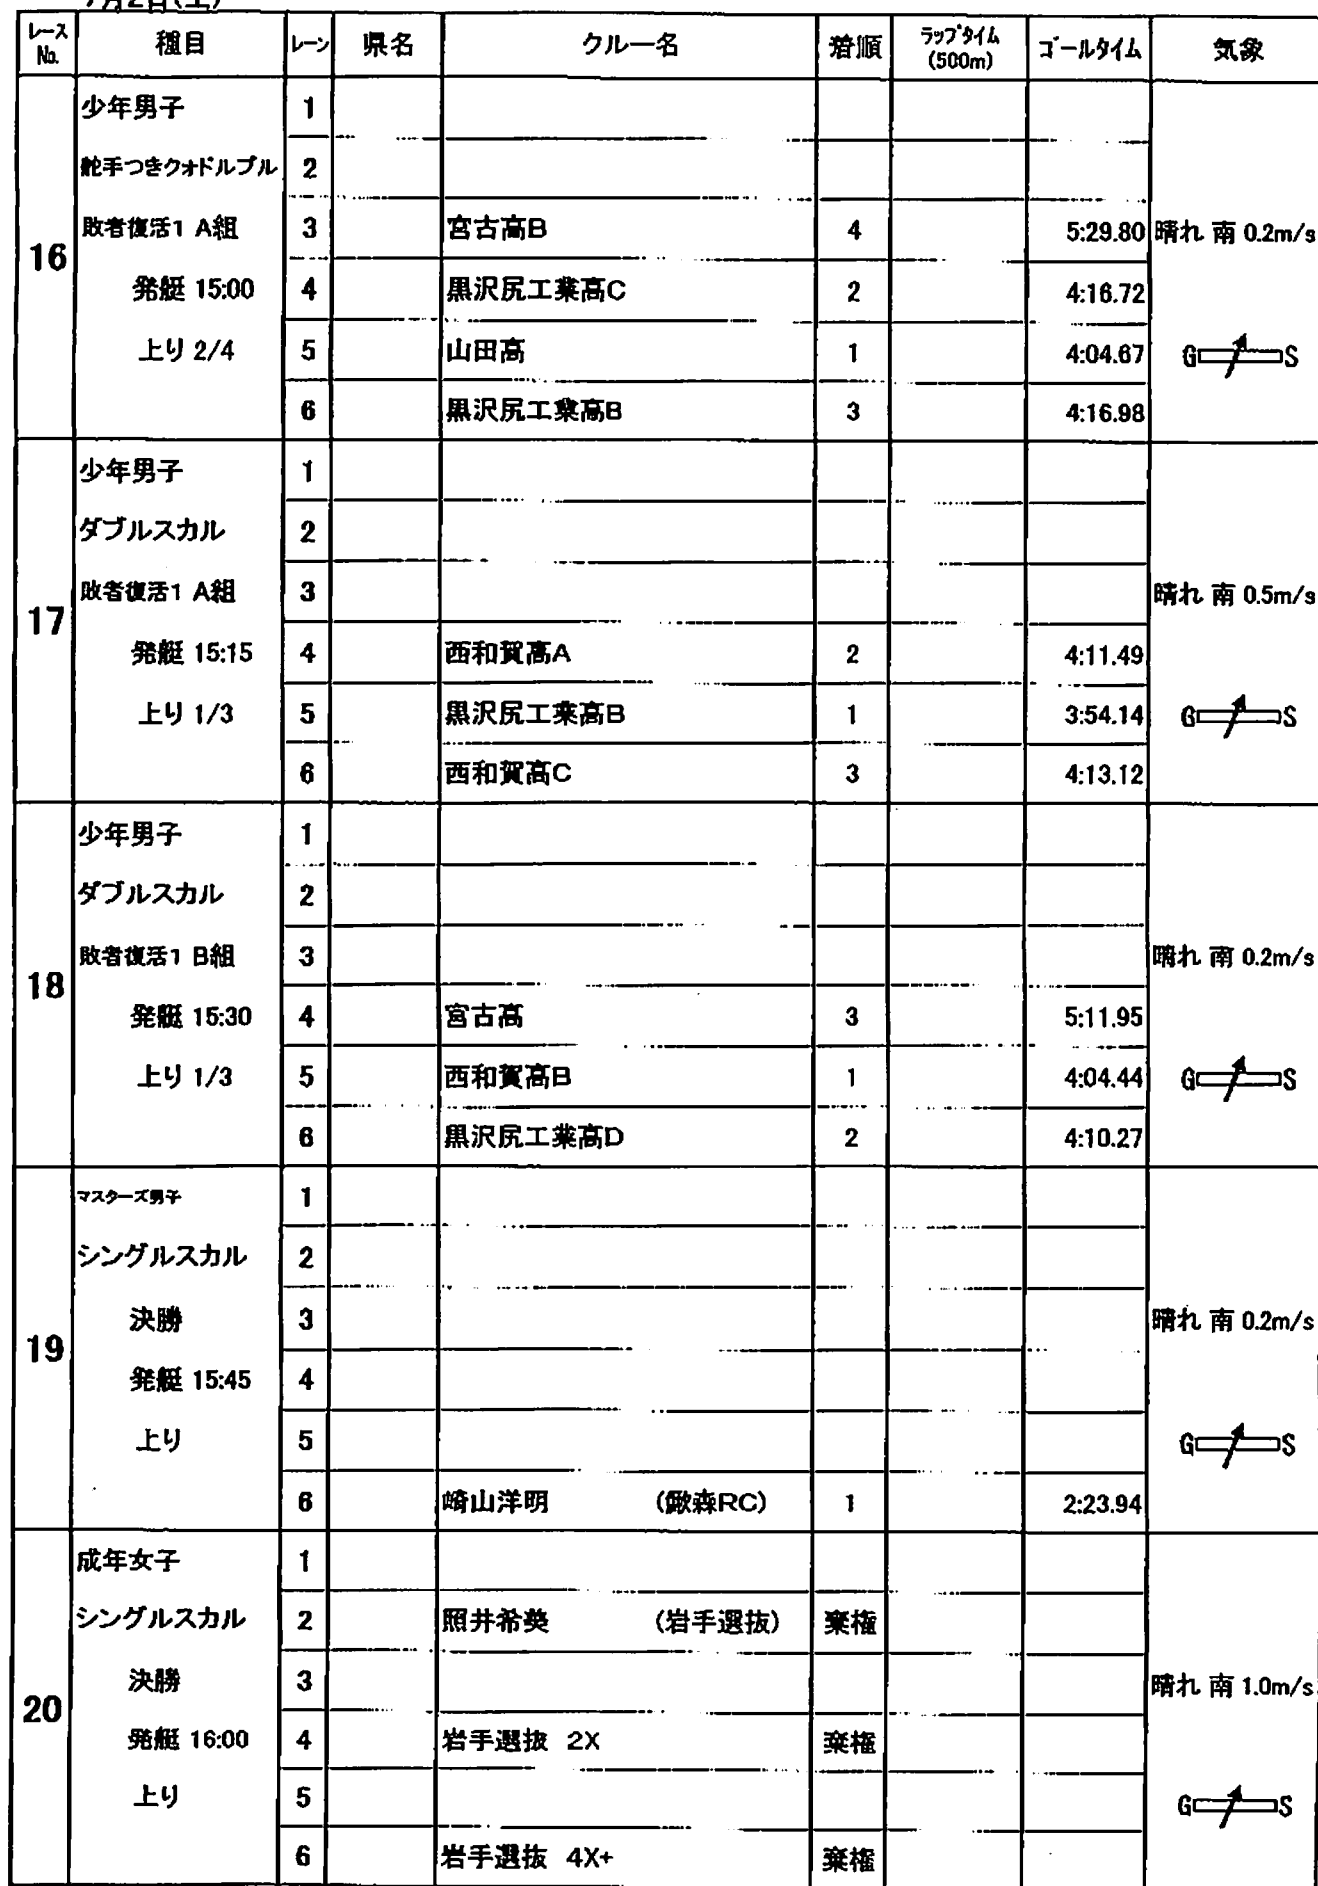 7月2日(土)
レースNo. 種目 レーン 県名 クルー名 着順 ラップタイム(500m) ゴールタイム 気象
16
少年男子 1
舵手つきクォドルプル 2
敗者復活1 A組 3 宮古高B 4 5:29.80 晴れ 南 0.2m/s
発艇 15:00 4 黒沢尻工業高C 2 4:16.72
上り 2/4 5 山田高 1 4:04.67 G S
6 黒沢尻工業高B 3 4:16.98
17
少年男子 1
ダブルスカル 2
敗者復活1 A組 3 晴れ 南 0.5m/s
発艇 15:15 4 西和賀高A 2 4:11.49
上り 1/3 5 黒沢尻工業高B 1 3:54.14 G S
6 西和賀高C 3 4:13.12
18
少年男子 1
ダブルスカル 2
敗者復活1 B組 3 晴れ 南 0.2m/s
発艇 15:30 4 宮古高 3 5:11.95
上り 1/3 5 西和賀高B 1 4:04.44 G S
6 黒沢尻工業高D 2 4:10.27
19
マスターズ男子 1
シングルスカル 2
決勝 3 晴れ 南 0.2m/s
発艇 15:45 4
上り 5 G S
6 崎山洋明 (鍬森RC) 1 2:23.94
20
成年女子 1
シングルスカル 2 照井希美 (岩手選抜) 棄権
決勝 3 晴れ 南 1.0m/s
発艇 16:00 4 岩手選抜 2X 棄権
上り 5 G S
6 岩手選抜 4X+ 棄権